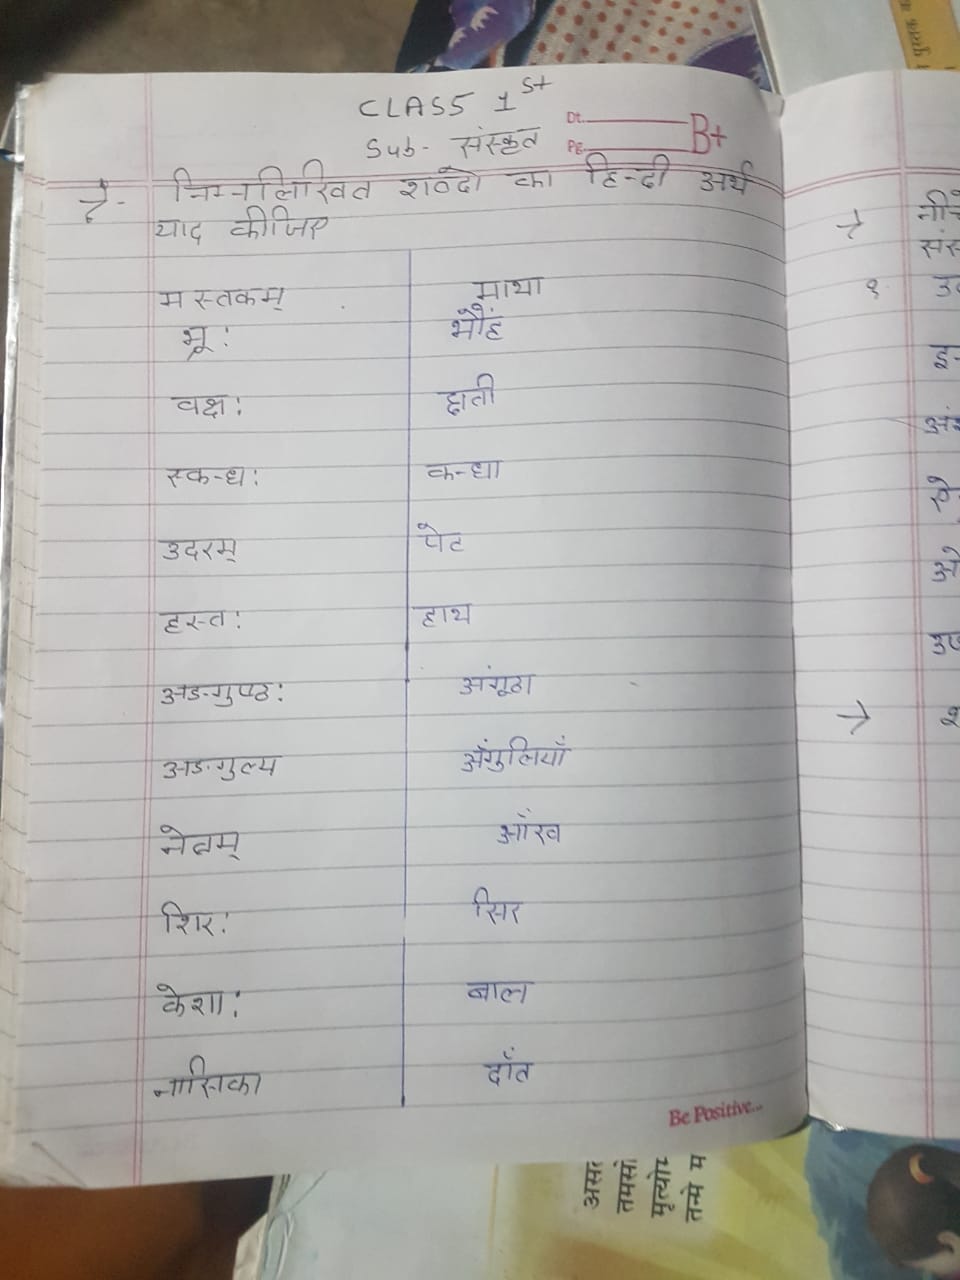 CLASS 1st
Sub- संस्कृत
Dt.
Pg.
B+
निम्नलिखित शब्दों का हिन्दी अर्थ
याद कीजिए
मस्तकम् माथा
भ्रू: भौंहें
वक्ष: छाती
स्कन्ध: कन्धा
उदरम् पेट
हस्त: हाथ
अङगुष्ठ: अंगूठा
अङगुल्य अँगुलियाँ
नेत्रम् आँख
शिर: सिर
केशा: बाल
नासिका दाँत
Be Positive...
पुस्तक